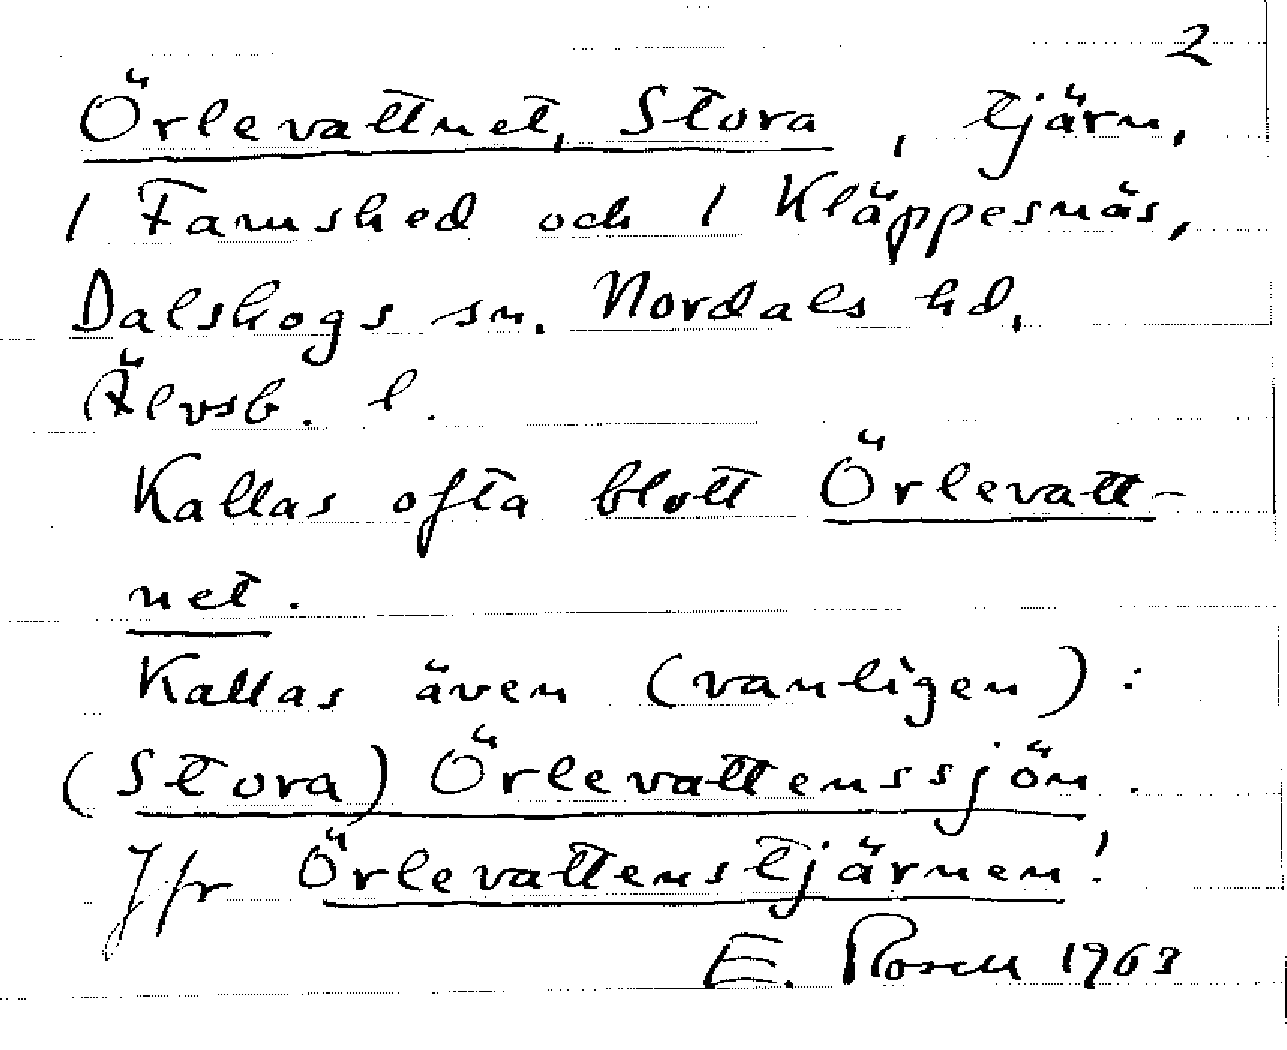 2
Örlevattnet, Stora, tjärn,
1 Famshed och 1 Kläppesnäs,
Dalskogs sn. Nordals hd,
Älvsb. l.
Kallas ofta blott Örlevatt-
net.
Kallas även (vanligen):
(Stora) Örlevattenssjön.
Jfr Örlevattenstjärnen!
E. Rosell 1963